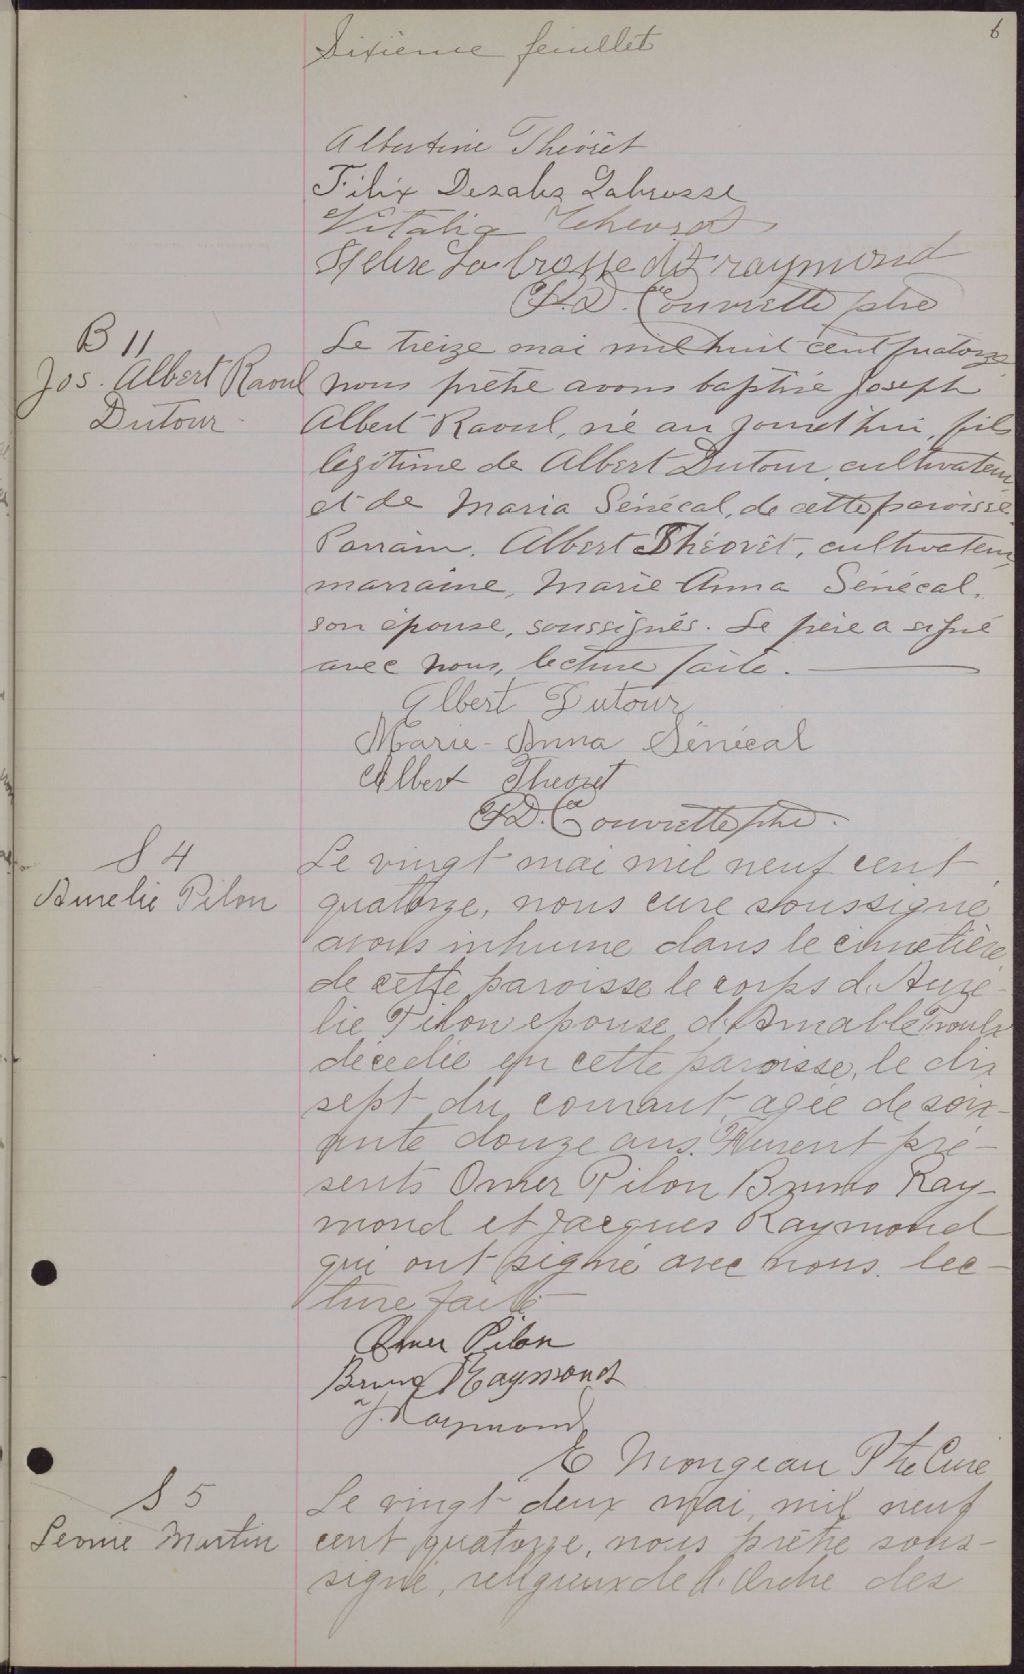 6
Sixième feuillet
Albertine Théorêt
Félix Desales Labrosse
Vitalia Theoret
Labrosse dit raymond
F.D. Couvrette ptre
B 11
Jos. Albert Raoul
Dutour
Le treize mai mil huit cent quatorze
nous prêtre avons baptisé Joseph
Albert Raoul, né au jourd'hui, fils
légitime de Albert Dutour, cultivateur
et de Maria Sénécal, de cette paroisse.
Parrain, Albert Théorêt, cultivateur,
marraine, Marie-Anna Sénécal,
son épouse, soussignés. Le père a signé
avec nous, lecture faite.
Albert Dutour
Marie-Anna Sénécal
Albert Theoret
F.D. Couvrette ptre.
S 4
Aurelie Pilon
Le vingt mai mil neuf cent
quatorze, nous curé soussigné
avons inhumé dans le cimetière
de cette paroisse le corps d'Auré-
lie Pilon epouse d'Amable Proulx
décedée en cette paroisse, le dix
sept du courant, agée de soix-
ante douze ans. Furent pré-
sents Omer Pilon Bruno Ray-
mond et Jacques Raymond
qui ont signé avec nous. lec-
ture faite
Omer Pilon
Bruno Raymond
J. Raymond
E Mongeau Ptre Curé
S 5
Leonie Martin
Le vingt-deux mai, mil neuf
cent quatorze, nous prêtre sous-
signé, religieux de l'Ordre des